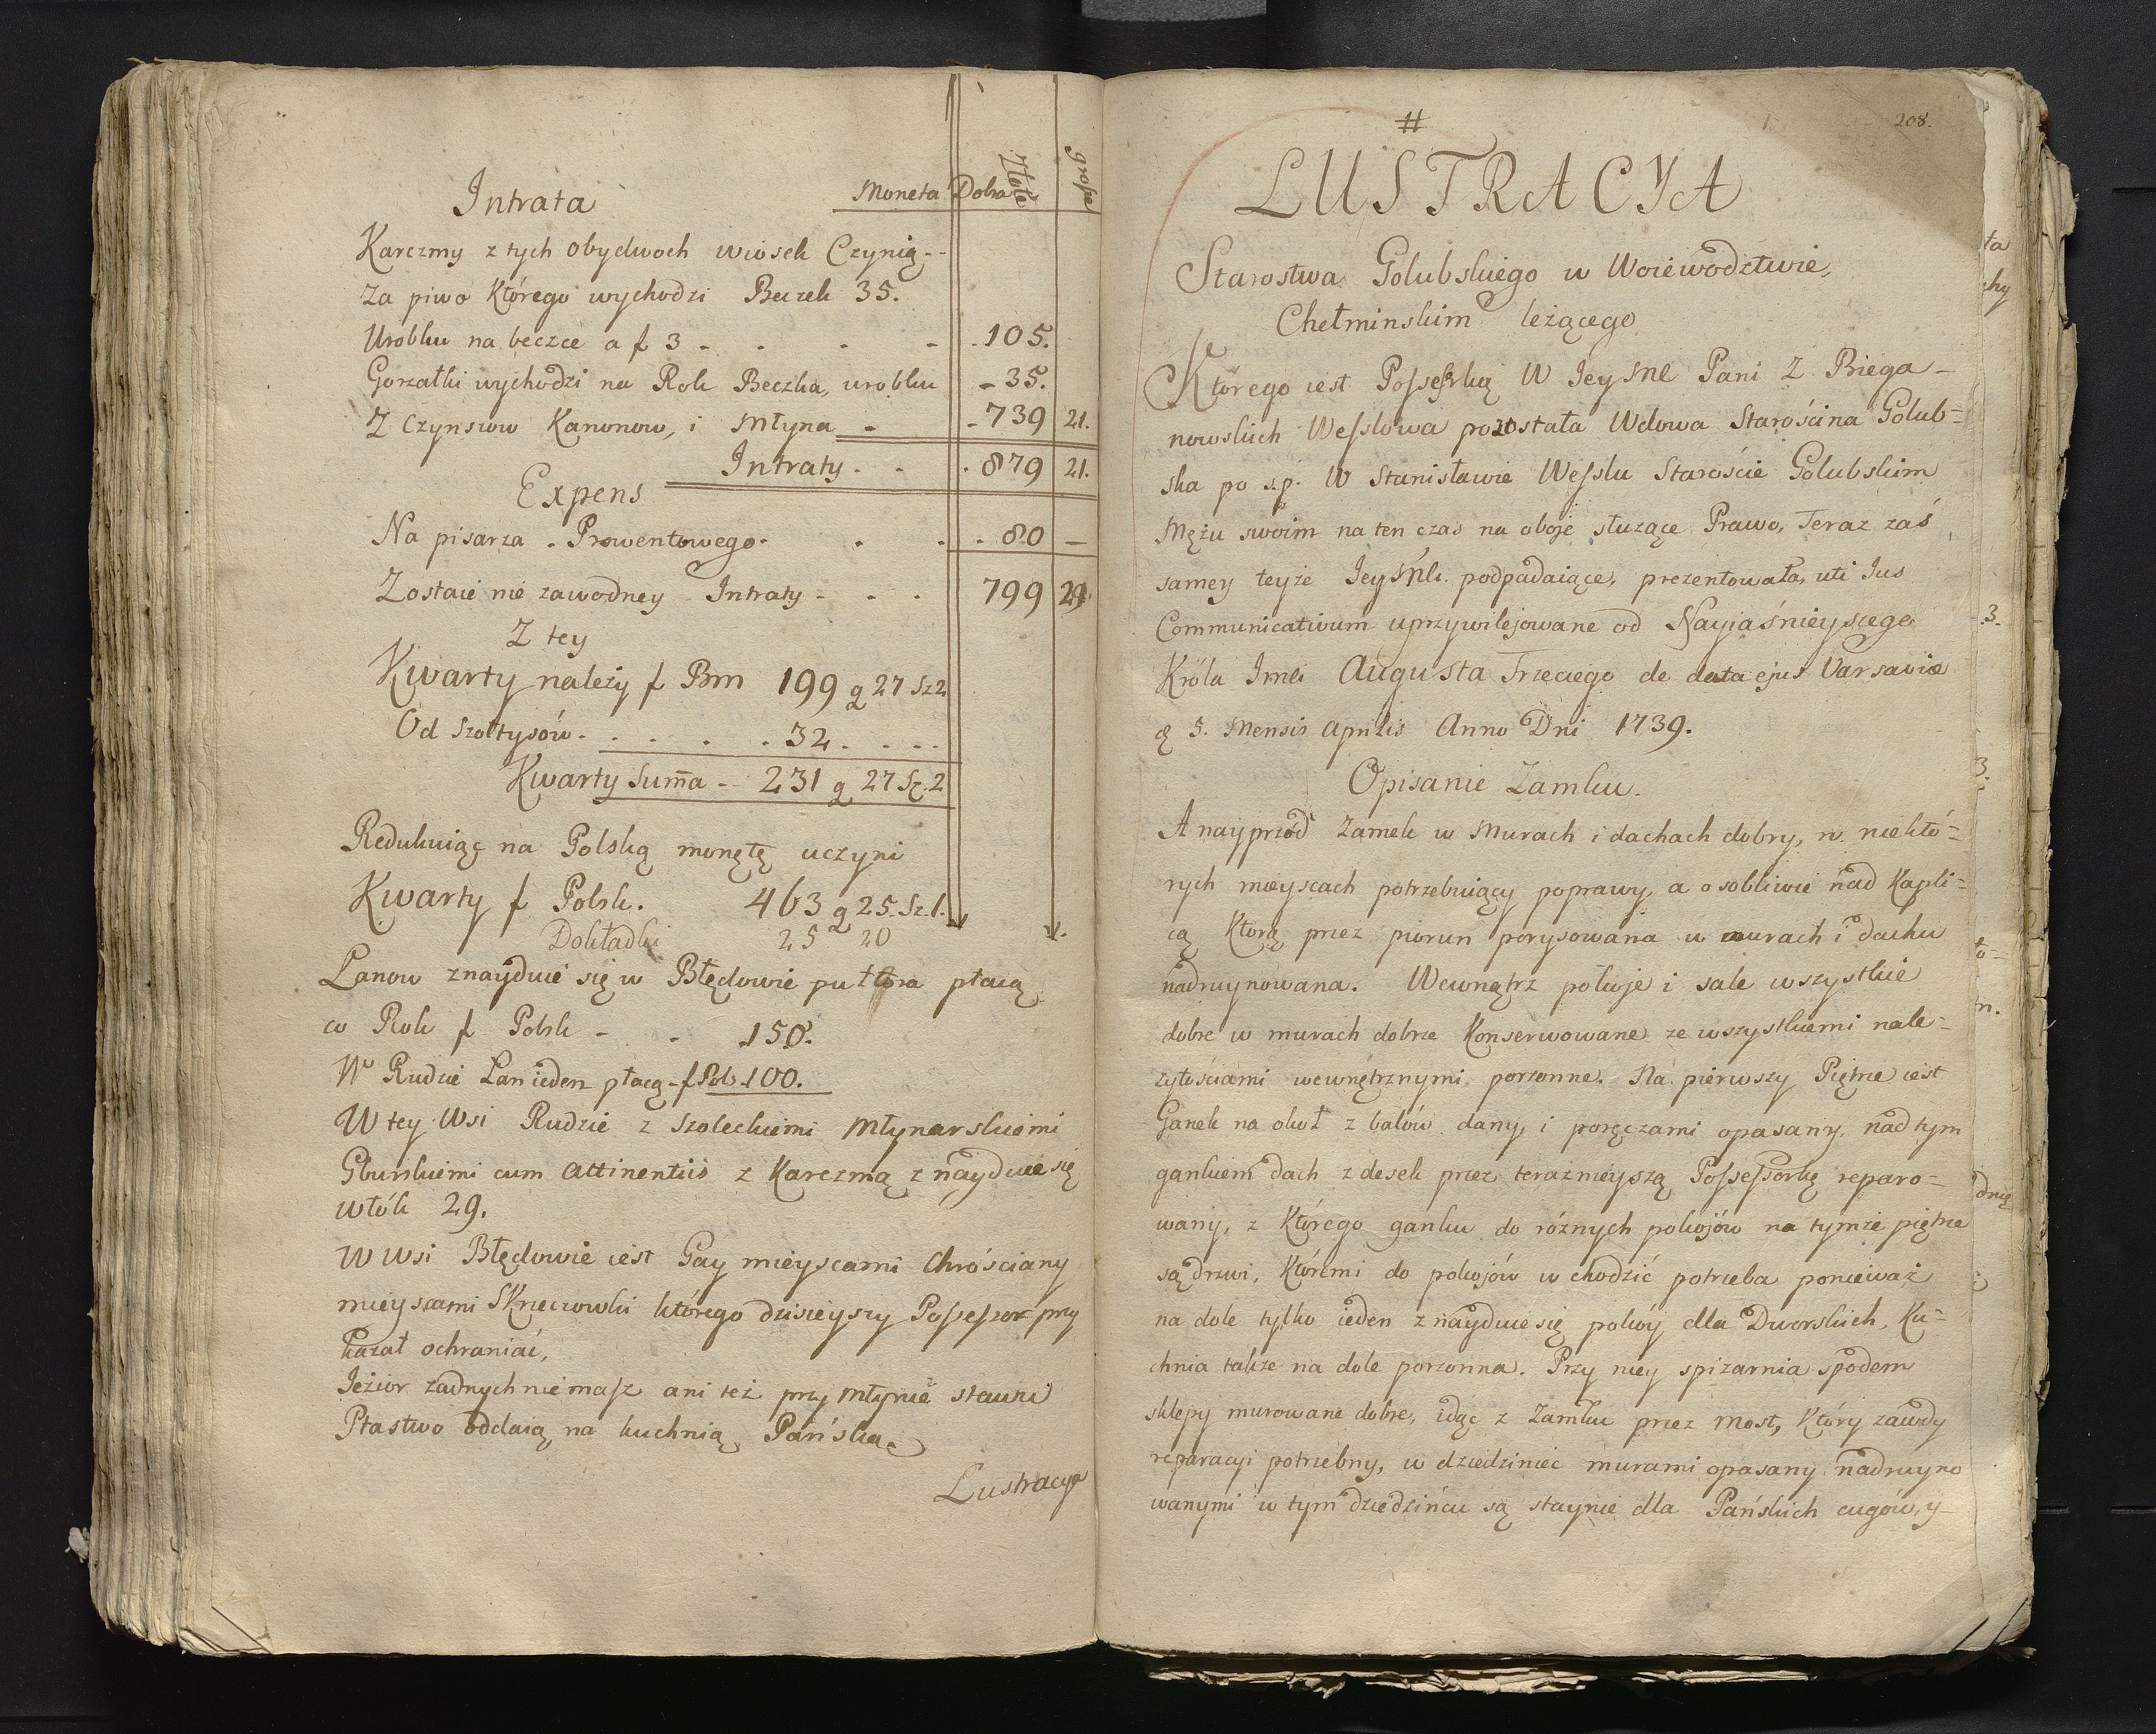 Intrata Moneta Dobra Złote grosze
Karczmy z tych obydwoch wiosek Czynią
Za piwo Którego wychodzi Beczek 35.
Urobku na beczce a f 3 - - - - 105.
Gorzałki wychodzi na Rok Beczka, urobku - 35.
Z Czynszow Kanonow, i Młyna - - 739 21.
Intraty - - 879 21.
Expens
Na pisarza Prowentowego - - - 80 —
Zostaie nie zawodney Intraty - - - 799 21.
Z tey
Kwarty należy f Prm 199 g 27 Sz 2
Od Szołtysów - . . . . 32 . . . .
Kwarty Sum̄a - 231 g 27 Sz. 2
Redukuiąc na Polską monętę uczyni
Kwarty f Polsk. 463 g 25. Sz. 1.
Dokładki 25 20
Lanow znayduie się w Błędowie pułtora płacą
co Rok f Polsk - - 150.
W Rudzie Lan ieden płacą - f Pol. 100.
W tey Wsi Rudzie z Szoleckiemi Młynarskiemi
Gburskiemi cum attinentiis z Karczmą znayduie się
włók 29.
W wsi Błędowie iest Gay mieyscami Chróściany
mieyscami Sknerowski którego dzisieyszy Possessor przy
kazał ochraniać,
Jezior żadnych niemasz ani też przy Młynie stawu
Ptastwo oddaią na kuchnią Pańską.
Lustracya
208.
#
LUSTRACYA
Starostwa Golubskiego w Woiewodztwie,
Chełminskim leżącego
Którego iest Possesorką W Jeysne Pani Z Biega-
nowskich Wesslowa pozostała Wdowa Starościna Golub=
ska po s.p. W Stanisławie Wesslu Staroście Golubskim
Mężu swoim na ten czas na oboje służące Prawo, Teraz zaś
samey teyże Jeyśnk. podpadaiące, prezentowała, uti Jus
Communicativum uprzywilejowane od Nayiaśnieyszego
Króla Jmci Augusta Trzeciego de data ejus Varsaviæ
d 5. Mensis Aprilis Anno Dni 1739.
Opisanie Zamku.
A nayprzód Zamek w Murach i dachach dobry, w niektó=
rych mieyscach potrzebuiący poprawy, a osobliwie nad Kapli=
cą Którą przez piorun porysowana w murach i dachu
nadruynowana. Wewnątrz pokoje i sale wszystkie
dobre w murach dobrze Konserwowane ze wszystkiemi nale=
żytościami wewnętrznymi porzonne. Na pierwszy Piętrze iest
Ganek na okoł z balów dany, i poręczami opasany, nad tym
gankiem dach z desek przez teraznieyszą Possessorkę reparo=
wany, z Którego ganku do różnych pokojów na tymże piętrze
są drzwi, Któremi do pokojów wchodzić potrzeba ponieważ
na dole tylko ieden znayduie się pokóy dla Dworskich, Ku=
chnia także na dole porzonna. Przy niey spizarnia spodem
sklepy murowane dobre, idąc z Zamku przez Most, Który zawdy
reparacyi potrzebny, w dziedziniec murami opasany nadruyno
wanymi w tym dziedzińcu są staynie dla Pańskich cugów, y